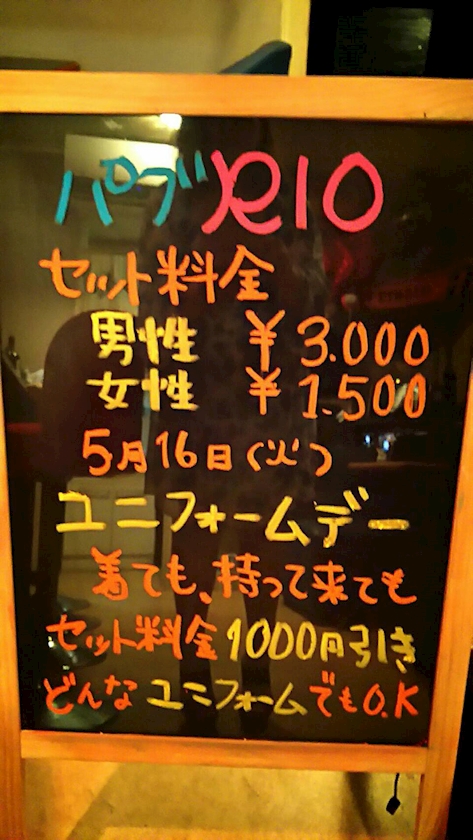 パブRIO
セット料金
男性 ¥3.000
女性 ¥1.500
5月16日(火)
ユニフォームデー
着ても、持って来ても
セット料金1000円引き
どんなユニフォームでもO.K